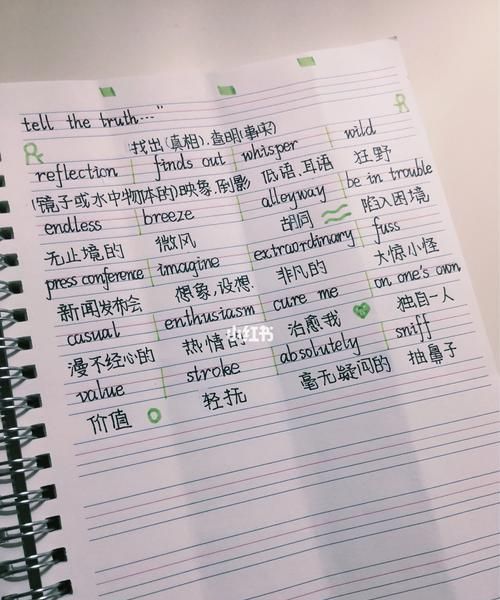 tell the truth..."
找出(真相),查明(事实)
reflection finds out whisper wild
(镜子或水中物体的)映象,倒影 低语,耳语 狂野
endless breeze alleyway be in trouble
无止境的 微风 胡同 陷入困境
press conference imagine extraordinary fuss
新闻发布会 想象,设想 非凡的 大惊小怪
casual enthusiasm cure me on one's own
漫不经心的 热情的 治愈我 独自一人
value stroke absolutely sniff
价值 轻抚 毫无疑问的 抽鼻子
小红书